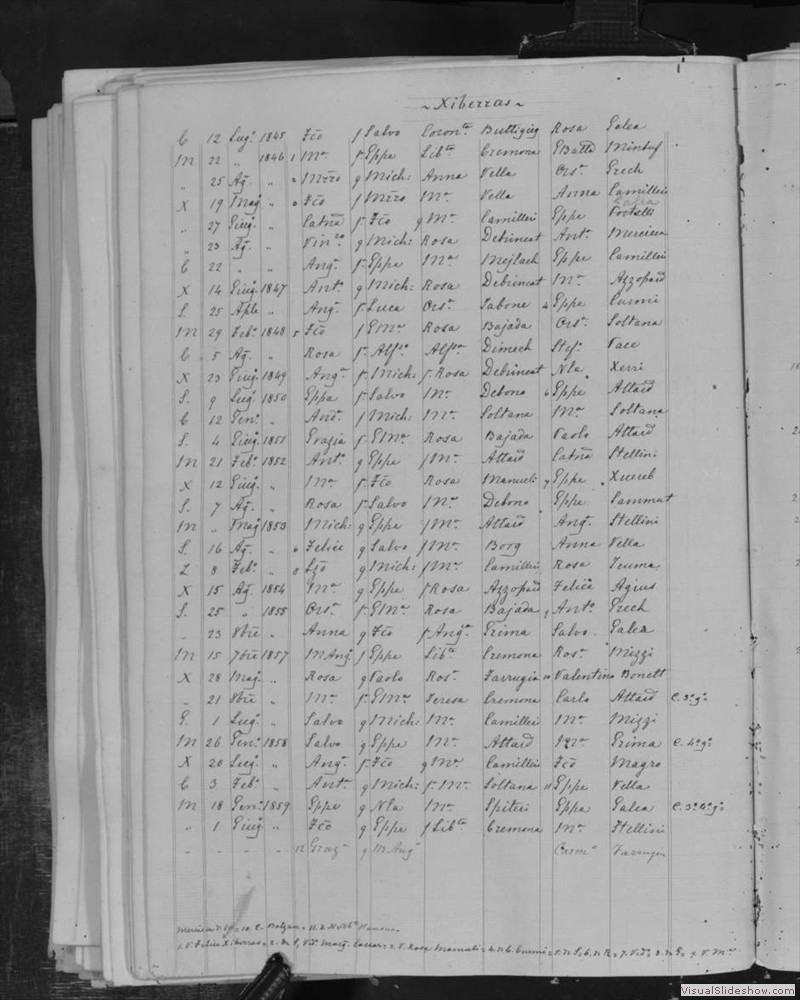 ~ Xiberras ~
C 12 Lug.o 1845 Fco f Salvo Coronta Buttigieg Rosa Galea
M 22 " 1846 1 Ma f. Eppe Liba Cremona GBatta Mintuf
" 25 Ag. " Mzro g Mich: Anna Vella Ors. Grech
X 19 Mag " Fco f Mzro Ma Vella Anna Camilleri
" 27 Giug. " Catna f. Fco g Ma Camilleri Eppe Portelli
" 23 Ag. " Vinzo g Mich: Rosa Debrincat Anta Mercieca
C 22 " " Anga f. Eppe Ma Mejlach Eppe Camilleri
X 14 Giug. 1847 Anta g Mich: Rosa Debrincat Ma Azzopardi
S. 25 Aple " Anga f. Luca Orsa Tabone 4 Eppe Curmi
M 29 Feb.o 1848 5 Fco f GMa Rosa Bajada Orsa Soltana
C 5 Ag. " Rosa f. Alfo Alfa Dimech Stef. Pace
X 23 Giug. 1849 Anga f. Mich: f. Rosa Debrincat Nla Xerri
S. 9 Lug. 1850 Eppa f. Salvo Ma Debono 6 Eppe Attard
C 12 Gen.o " And. f Mich: Ma Soltana Ma Soltana
S. 4 Giug. 1851 Grazia f. GMa Rosa Bajada Paolo Attard
M 21 Feb.o 1852 Anto g Eppe f Ma Attard Catna Stellini
X 12 Giug. " Ma f. Fco Rosa Mamueli 7 Eppe Xuereb
S. 7 Ag. " Rosa f. Salvo Ma Debono Eppe Sammut
M " Mag. 1853 Mich: g Eppe f Ma Attard Ang. Stellini
S. 16 Ag. " 6 Felice g Salvo f Ma Borg Anna Vella
Z 8 Feb.o " g Mich: f Ma Camilleri Rosa Teuma
X 15 Ag. 1854 Ma g Eppe f Rosa Azzopardi Felice Agius
S. 25 " 1855 Orsa f. GMa Rosa Bajada 9 Anto Grech
" 23 8bre " Anna g Fco f. Anga Grima Salvo Galea
M 15 7bre 1857 MAnga f Eppe Liba Cremona Rosa Mizzi
X 28 Mag. " Rosa g Paolo Rosa Farrugia 10 Valentino Bonett
" 21 8bre " Ma f. GMa Teresa Cremona Carlo Attard C. 3o go
G. 1 Lug. " Salvo g Mich: Ma Camilleri Ma Mizzi
M 26 Gen.o 1858 Salvo g Eppe Ma Attard Grima C. 4o go
X 20 Lug. " Anga f. Fco g Ma Camilleri Fco Magro
C 3 Feb.o " Anta g Mich: f. Ma Soltana 11 Eppe Vella
M 18 Gen.o 1859 Eppe g Nla Ma Spiteri Eppa Galea C. 3o 4o go
" 1 Giug. " Fco g Eppe f Liba Cremona Ma Stellini
- - - - 12 Graza g M Anga Carma Farrugia
VisualSlideshow.com